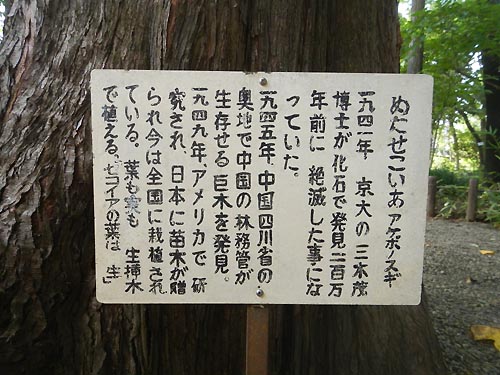 めたせこいあ アケボノスギ
一九四一年 京大の三木茂
博士が化石で発見二百万
年前に 絶滅した事にな
っていた。
一九四五年、中国四川省の
奥地で中国の林務管が
生存せる巨木を発見。
一九四九年、アメリカで 研
究され、日本に苗木が贈
られ今は全国に栽植され
ている。 葉も実も 生挿木
で植える。セコイアの葉は 生」